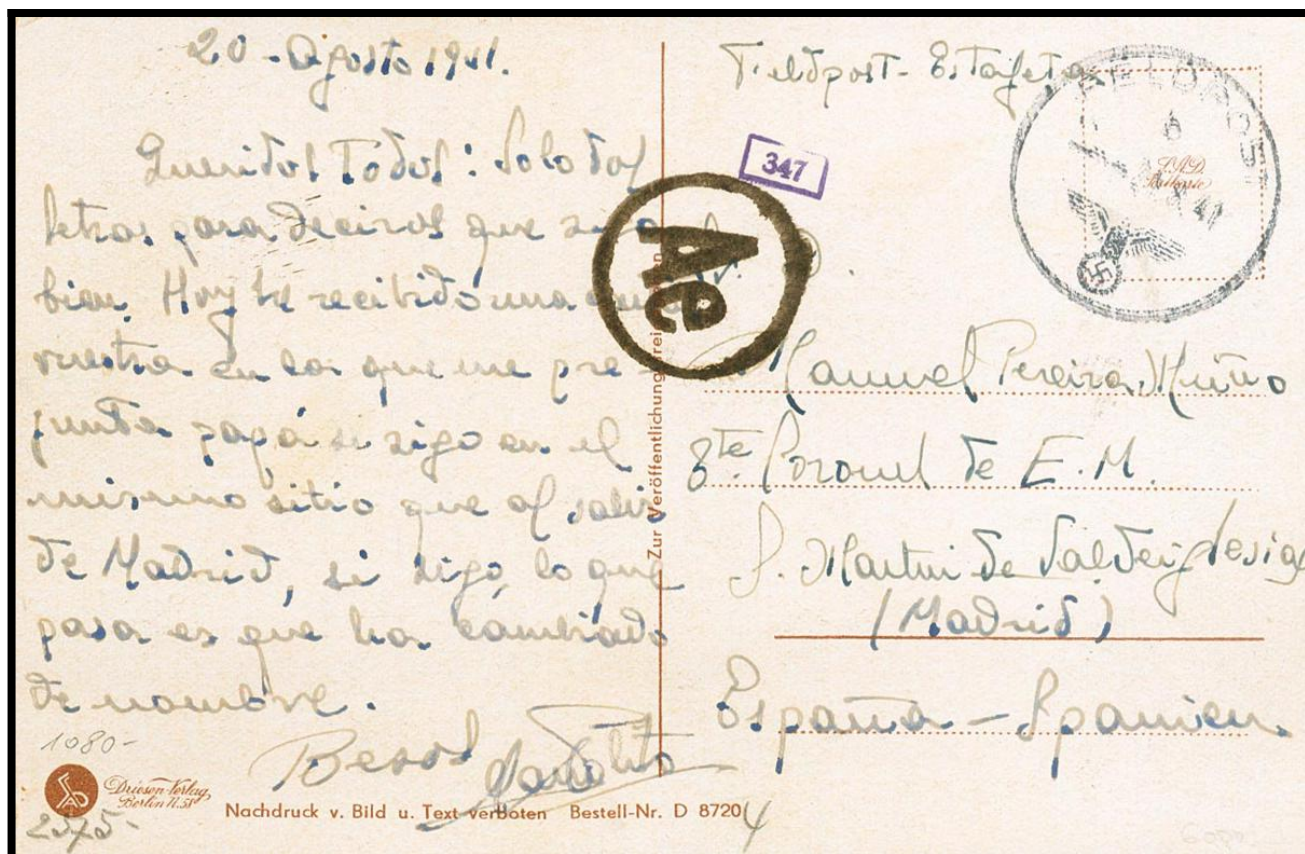 20 - Agosto 1941.
Queridos Todos: Solo dos
letras para deciros que sigo
bien. Hoy he recibido una
vuestra en la que me pre-
gunta papá si sigo en el
mismo sitio que al salir
de Madrid, si sigo, lo que
pasa es que ha cambiado
de nombre.
Besos
1080-
Driesen-Verlag
Berlin N.58
2575-
Nachdruck v. Bild u. Text verboten Bestell-Nr. D 8720
4
Zur Veröffentlichung frei
Feldpost - Estafeta
FELDPOST
41
347
Ae
Manuel Pereira Muiño
Tte Coronel de E.M.
S. Martin de Valdeiglesias
(Madrid)
España - Spanien.